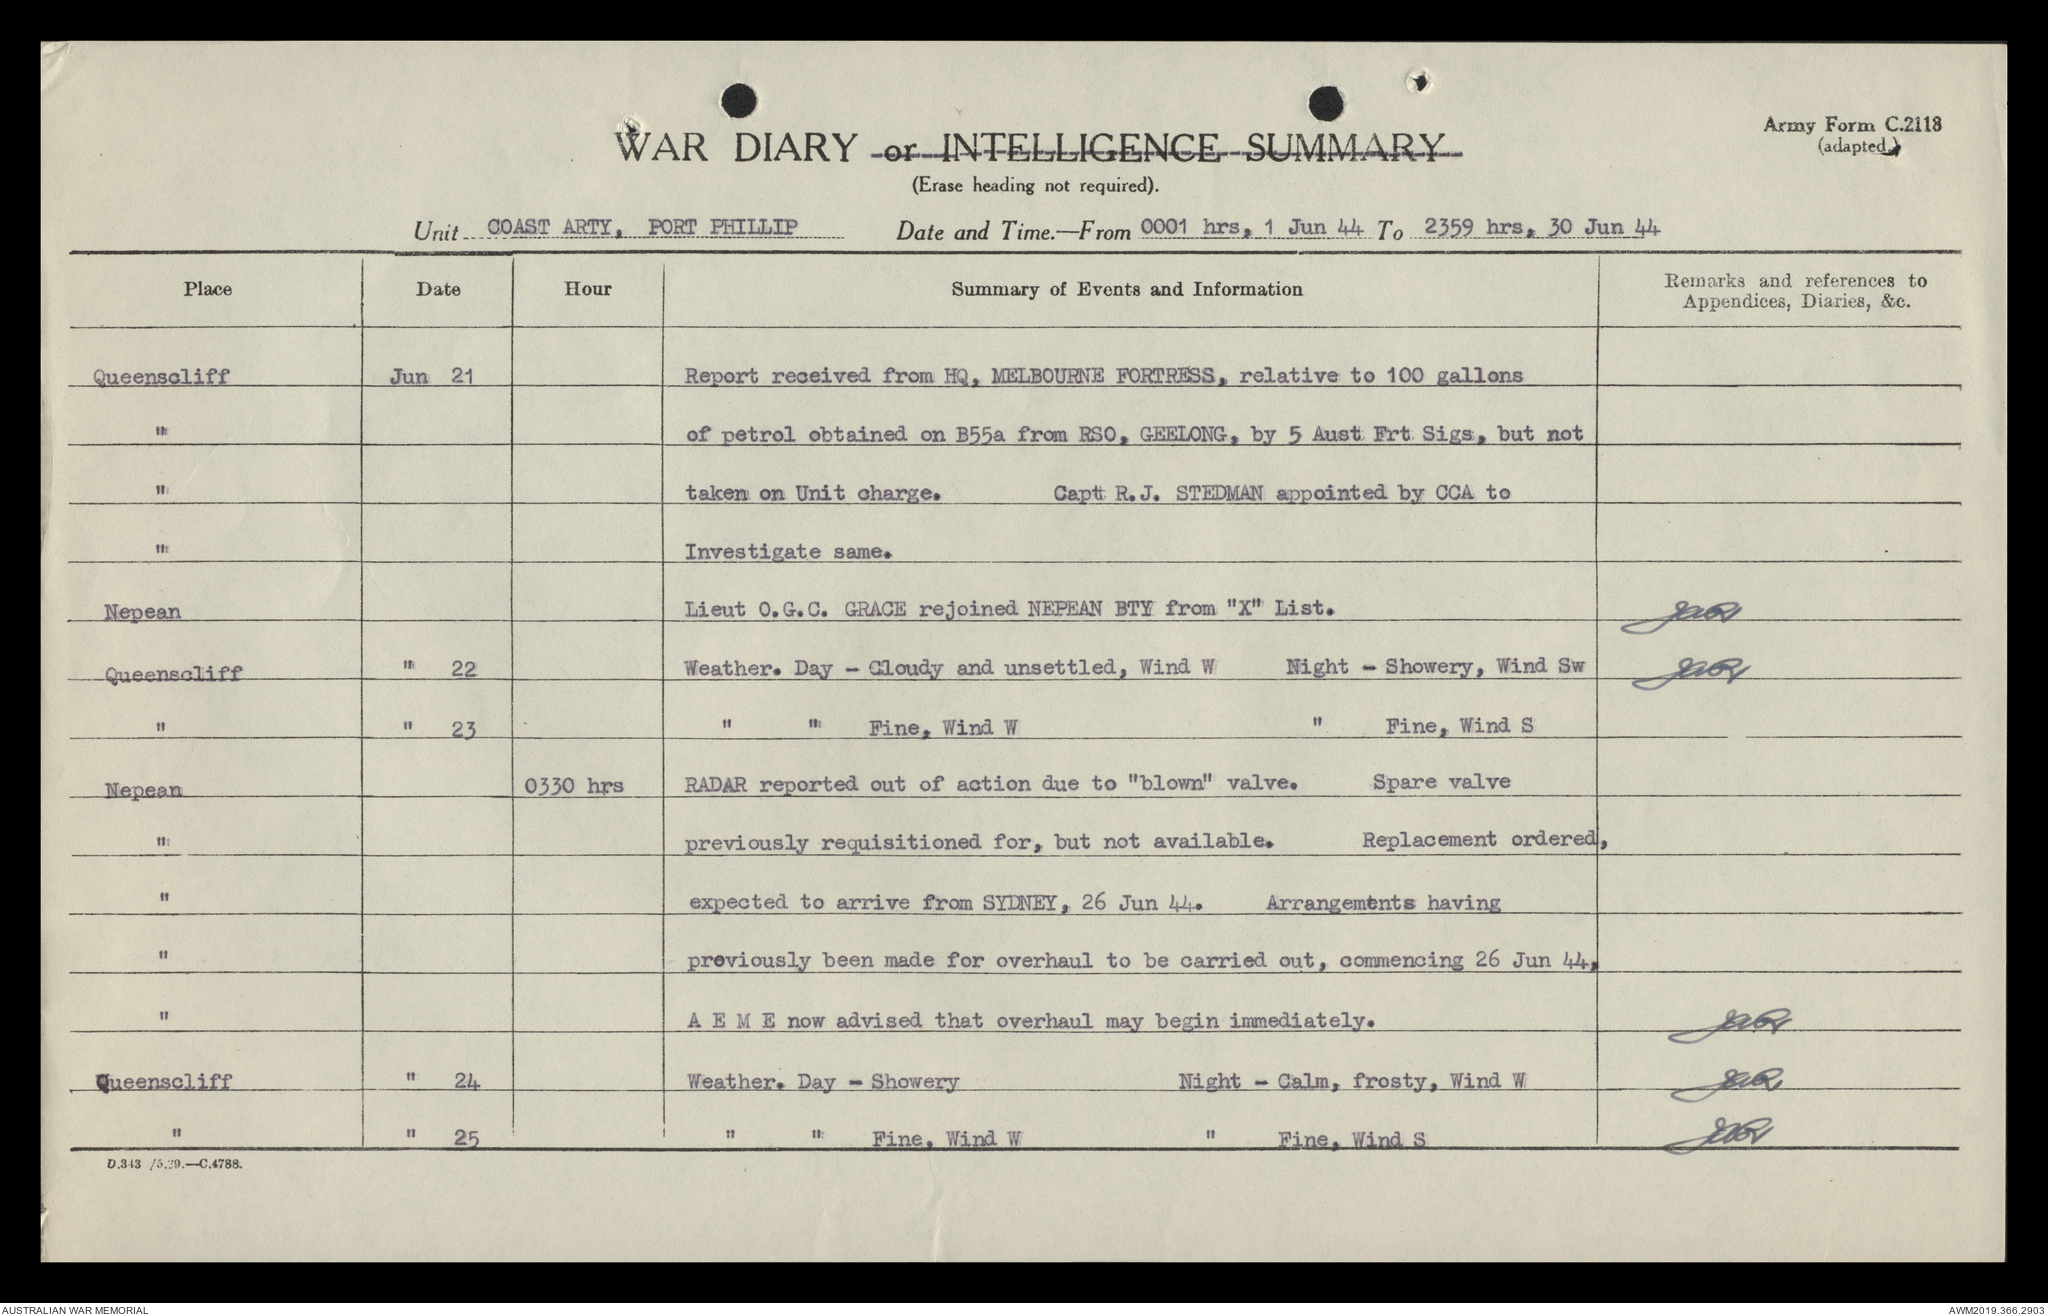 Army Form C.2118
(adapted.)
WAR DIARY or INTELLIGENCE SUMMARY
(Erase heading not required).
Unit COAST ARTY, PORT PHILLIP Date and Time.—From 0001 hrs, 1 Jun 44 To 2359 hrs, 30 Jun 44
Place Date Hour Summary of Events and Information Remarks and references to Appendices, Diaries, &c.
Queenscliff Jun 21 Report received from HQ, MELBOURNE FORTRESS, relative to 100 gallons
" of petrol obtained on B55a from RSO, GEELONG, by 5 Aust Frt Sigs, but not
" taken on Unit charge. Capt R.J. STEDMAN appointed by CCA to
" Investigate same.
Nepean Lieut O.G.C. GRACE rejoined NEPEAN BTY from "X" List.
Queenscliff " 22 Weather. Day - Cloudy and unsettled, Wind W Night - Showery, Wind Sw
" " 23 " " Fine, Wind W " Fine, Wind S
Nepean 0330 hrs RADAR reported out of action due to "blown" valve. Spare valve
" previously requisitioned for, but not available. Replacement ordered,
" expected to arrive from SYDNEY, 26 Jun 44. Arrangements having
" previously been made for overhaul to be carried out, commencing 26 Jun 44,
" A E M E now advised that overhaul may begin immediately.
Queenscliff " 24 Weather. Day - Showery Night - Calm, frosty, Wind W
" " 25 " " Fine, Wind W " Fine, Wind S
D.343 /5.29.—C.4788.
AUSTRALIAN WAR MEMORIAL AWM2019.366.2903